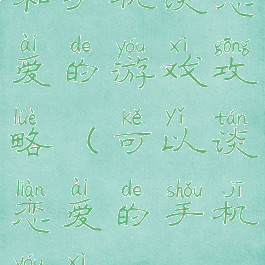 和手机谈恋
ài de yóu xì gōng
爱的游戏攻
luè kě yǐ tán
略（可以谈
liàn ài de shǒu jī
恋爱的手机
yóu xì